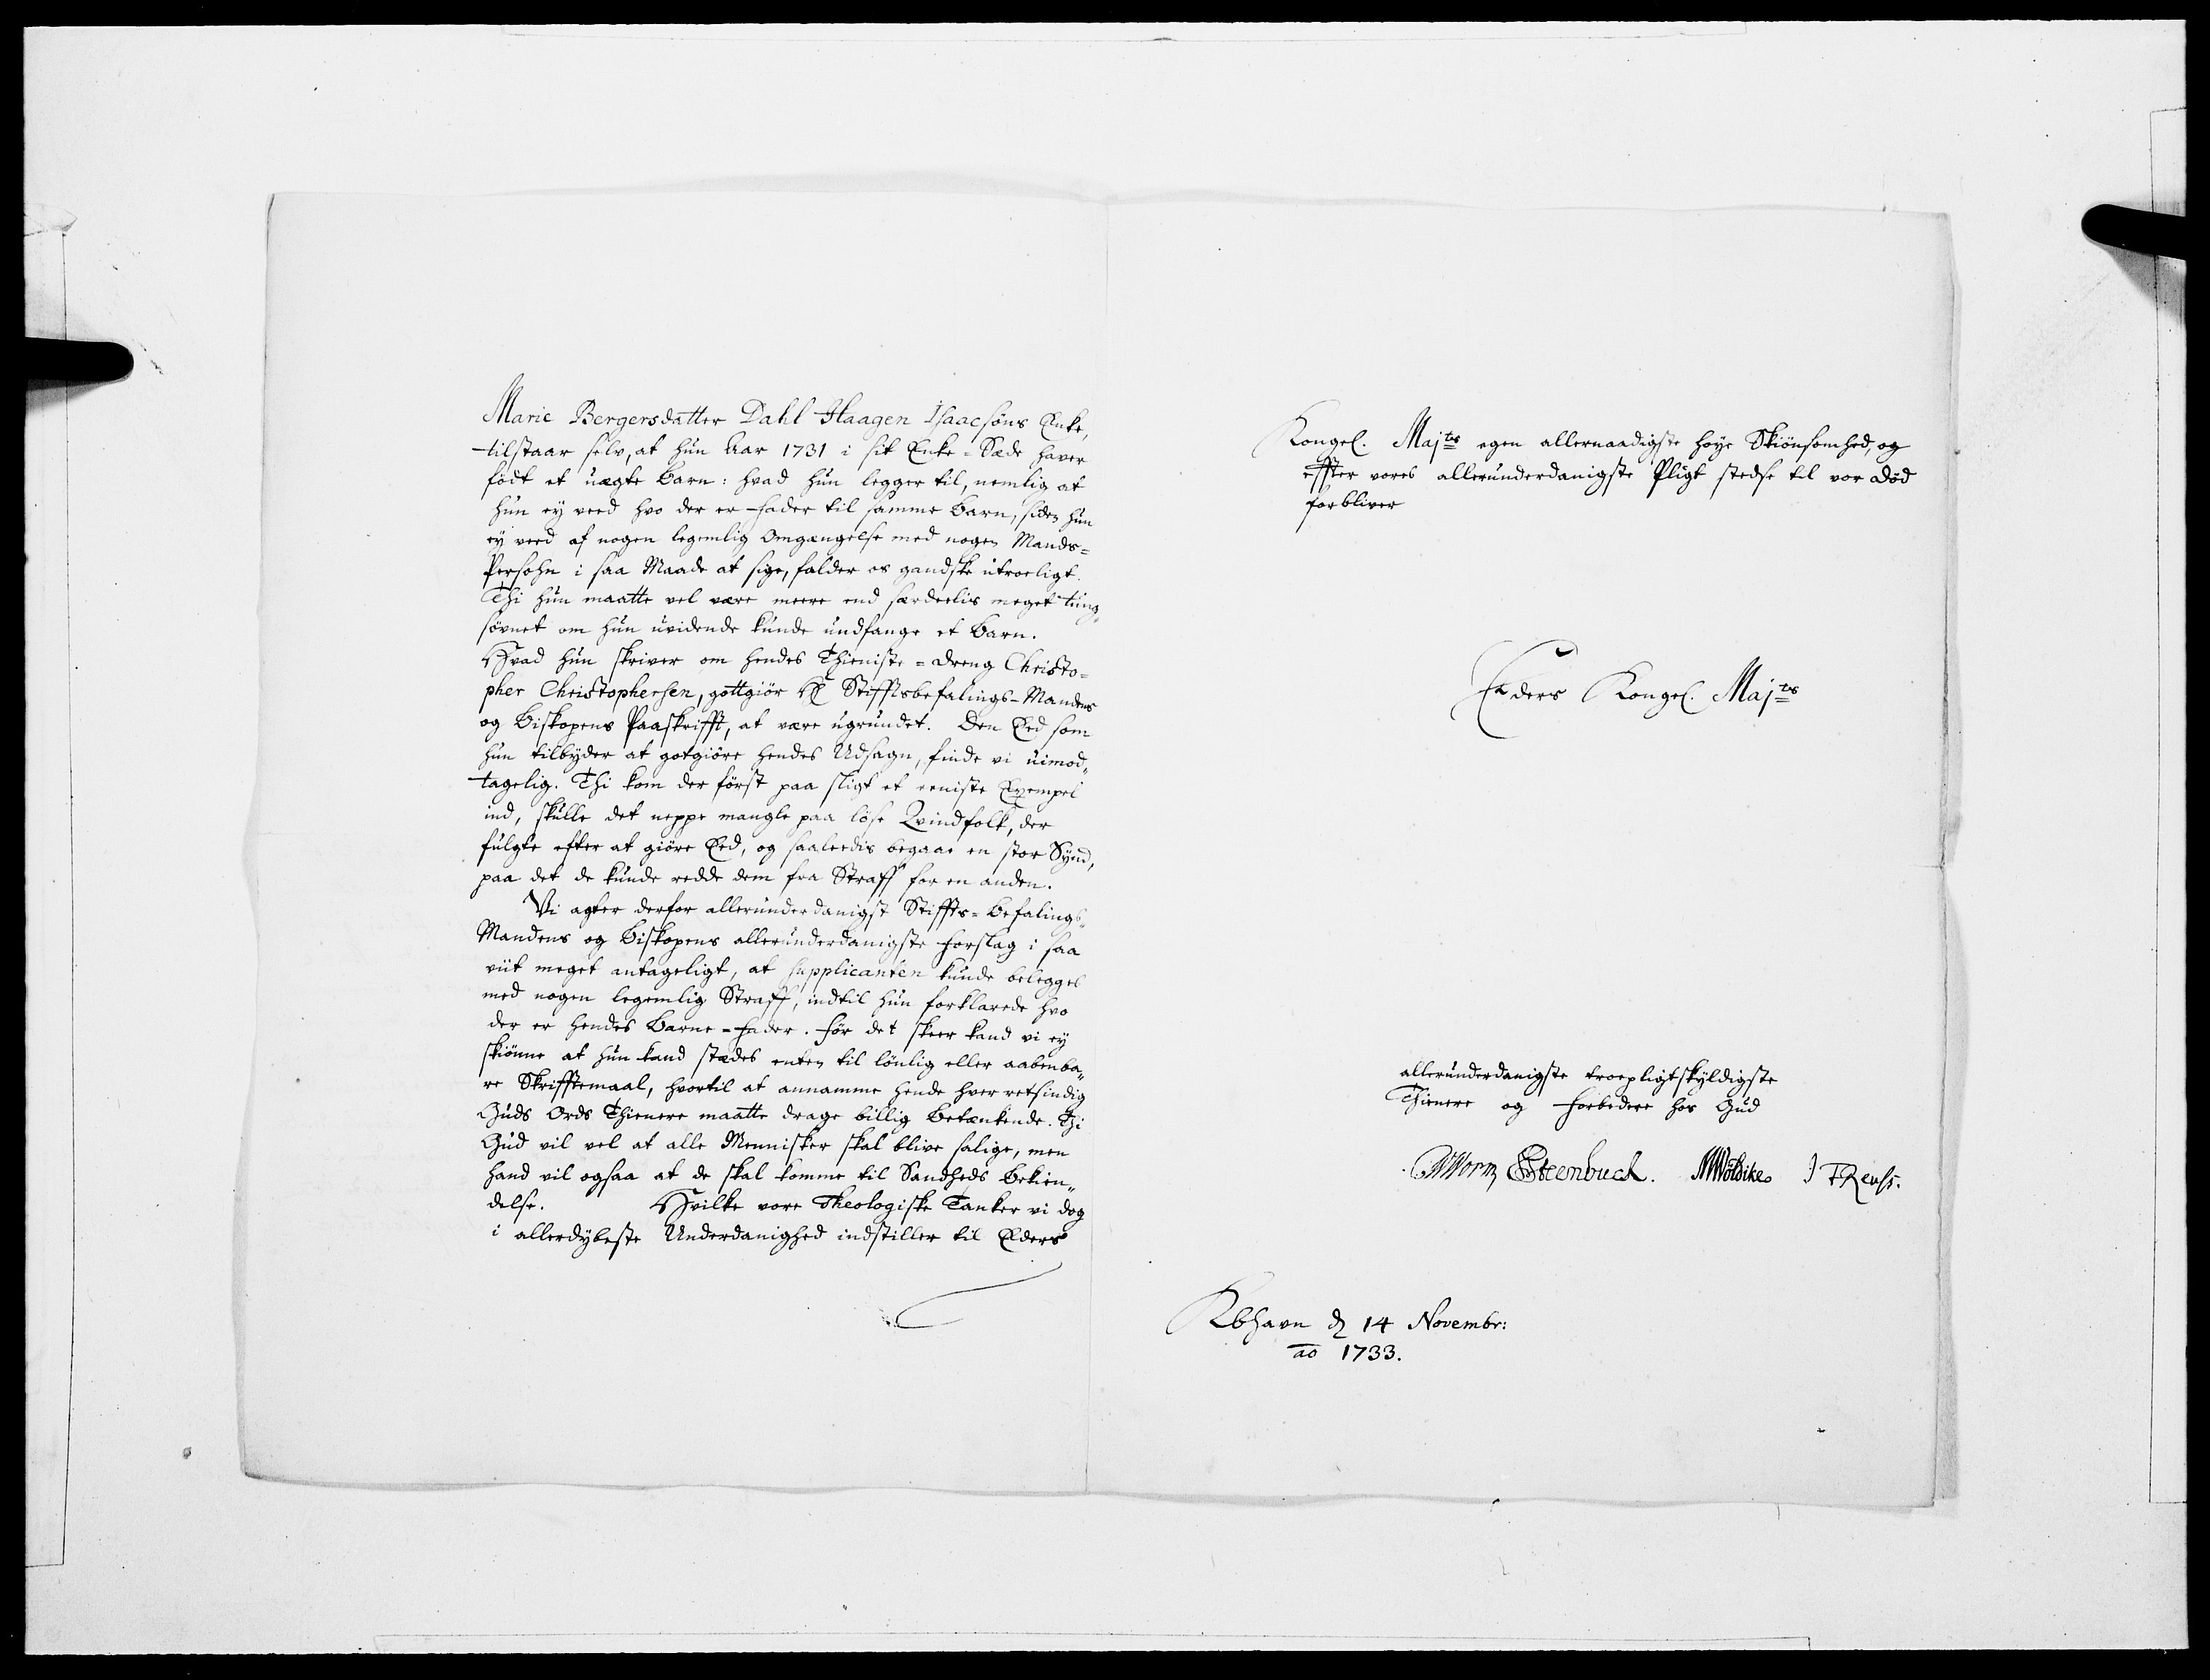 Marie Bergersdatter Dahl Haagen Isaacsøns Enke,
tilstaar selv, at hun Aar 1731 i sit Enke-Sæde haver
födt et uægte Barn: hvad hun legger til, nemlig at
hun ey veed hvo der er Fader til samme Barn, siden hun
ey veed af nogen legemlig Omgængelse med nogen Mands-
Persohn i saa Maade at sige, falder os gandske utroeligt.
Thi hun maatte vel være meere end særdeelis meget tung-
søvnet om hun uvidende kunde undfange et Barn.
Hvad hun skriver om hendes Thieniste-dreng Christo-
pher Christophersen, gottgiör Stifftsbefalings-Mandens
og Biskopens Paaskrifft, at være ugrundet. Den Eed som
hun tilbyder at gotgiöre hendes Udsagn, finde vi uimod-
tagelig. Thi kom der först paa sligt et eeniste Exempel
ind, skulle det neppe mangle paa löse Qvindfolk, der
fulgte efter at giöre Eed, og saaleedis begaae en stor Synd,
paa det de kunde redde dem fra Straff for en anden.
Vi agter derfor allerunderdanigst Stiffts-Befalings-
Mandens og Biskopens allerunderdanigste Forslag i saa
viit meget antageligt, at supplicanten kunde belegges
med nogen legemlig Straff, indtil hun forklarede hvo
der er hendes Barne-Fader. För det skeer kand vi ey
skiönne at hun kand stædes enten til lönlig eller aabenba-
re Skrifftemaal, hvortil at annamme hende hver retsindig
Guds Ords Thienere maatte drage billig Betænkende. Thi
Gud vil vel at alle Mennisker skal blive salige, men
hand vil ogsaa at de skal komme til Sandheds Bekien-
delse. Hvilke vore Theologiske Tanker vi dog
i allerdybeste Underdanighed indstiller til Eders
Kongel. Majts egen allernaadigste höye Skiönsomhed, og
effter vores allerunderdanigste Pligt stedse til vor Död
forbliver
Eders Kongel. Majts
allerunderdanigste troepligtskyldigste
Thienere og Forbedere hos Gud
CWorm HSteenbuch. MWöldike J T Reuss.
Kbhavn d 14 Novembr:
ao 1733.